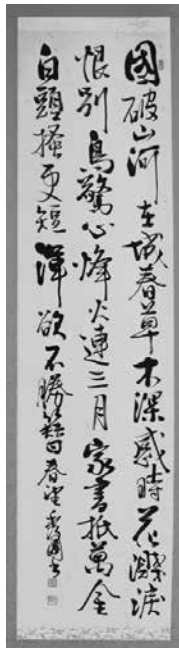 國破山河在城春草木深感時花濺淚
恨別鳥驚心烽火連三月家書抵萬金
白頭搔更短渾欲不勝簪春望